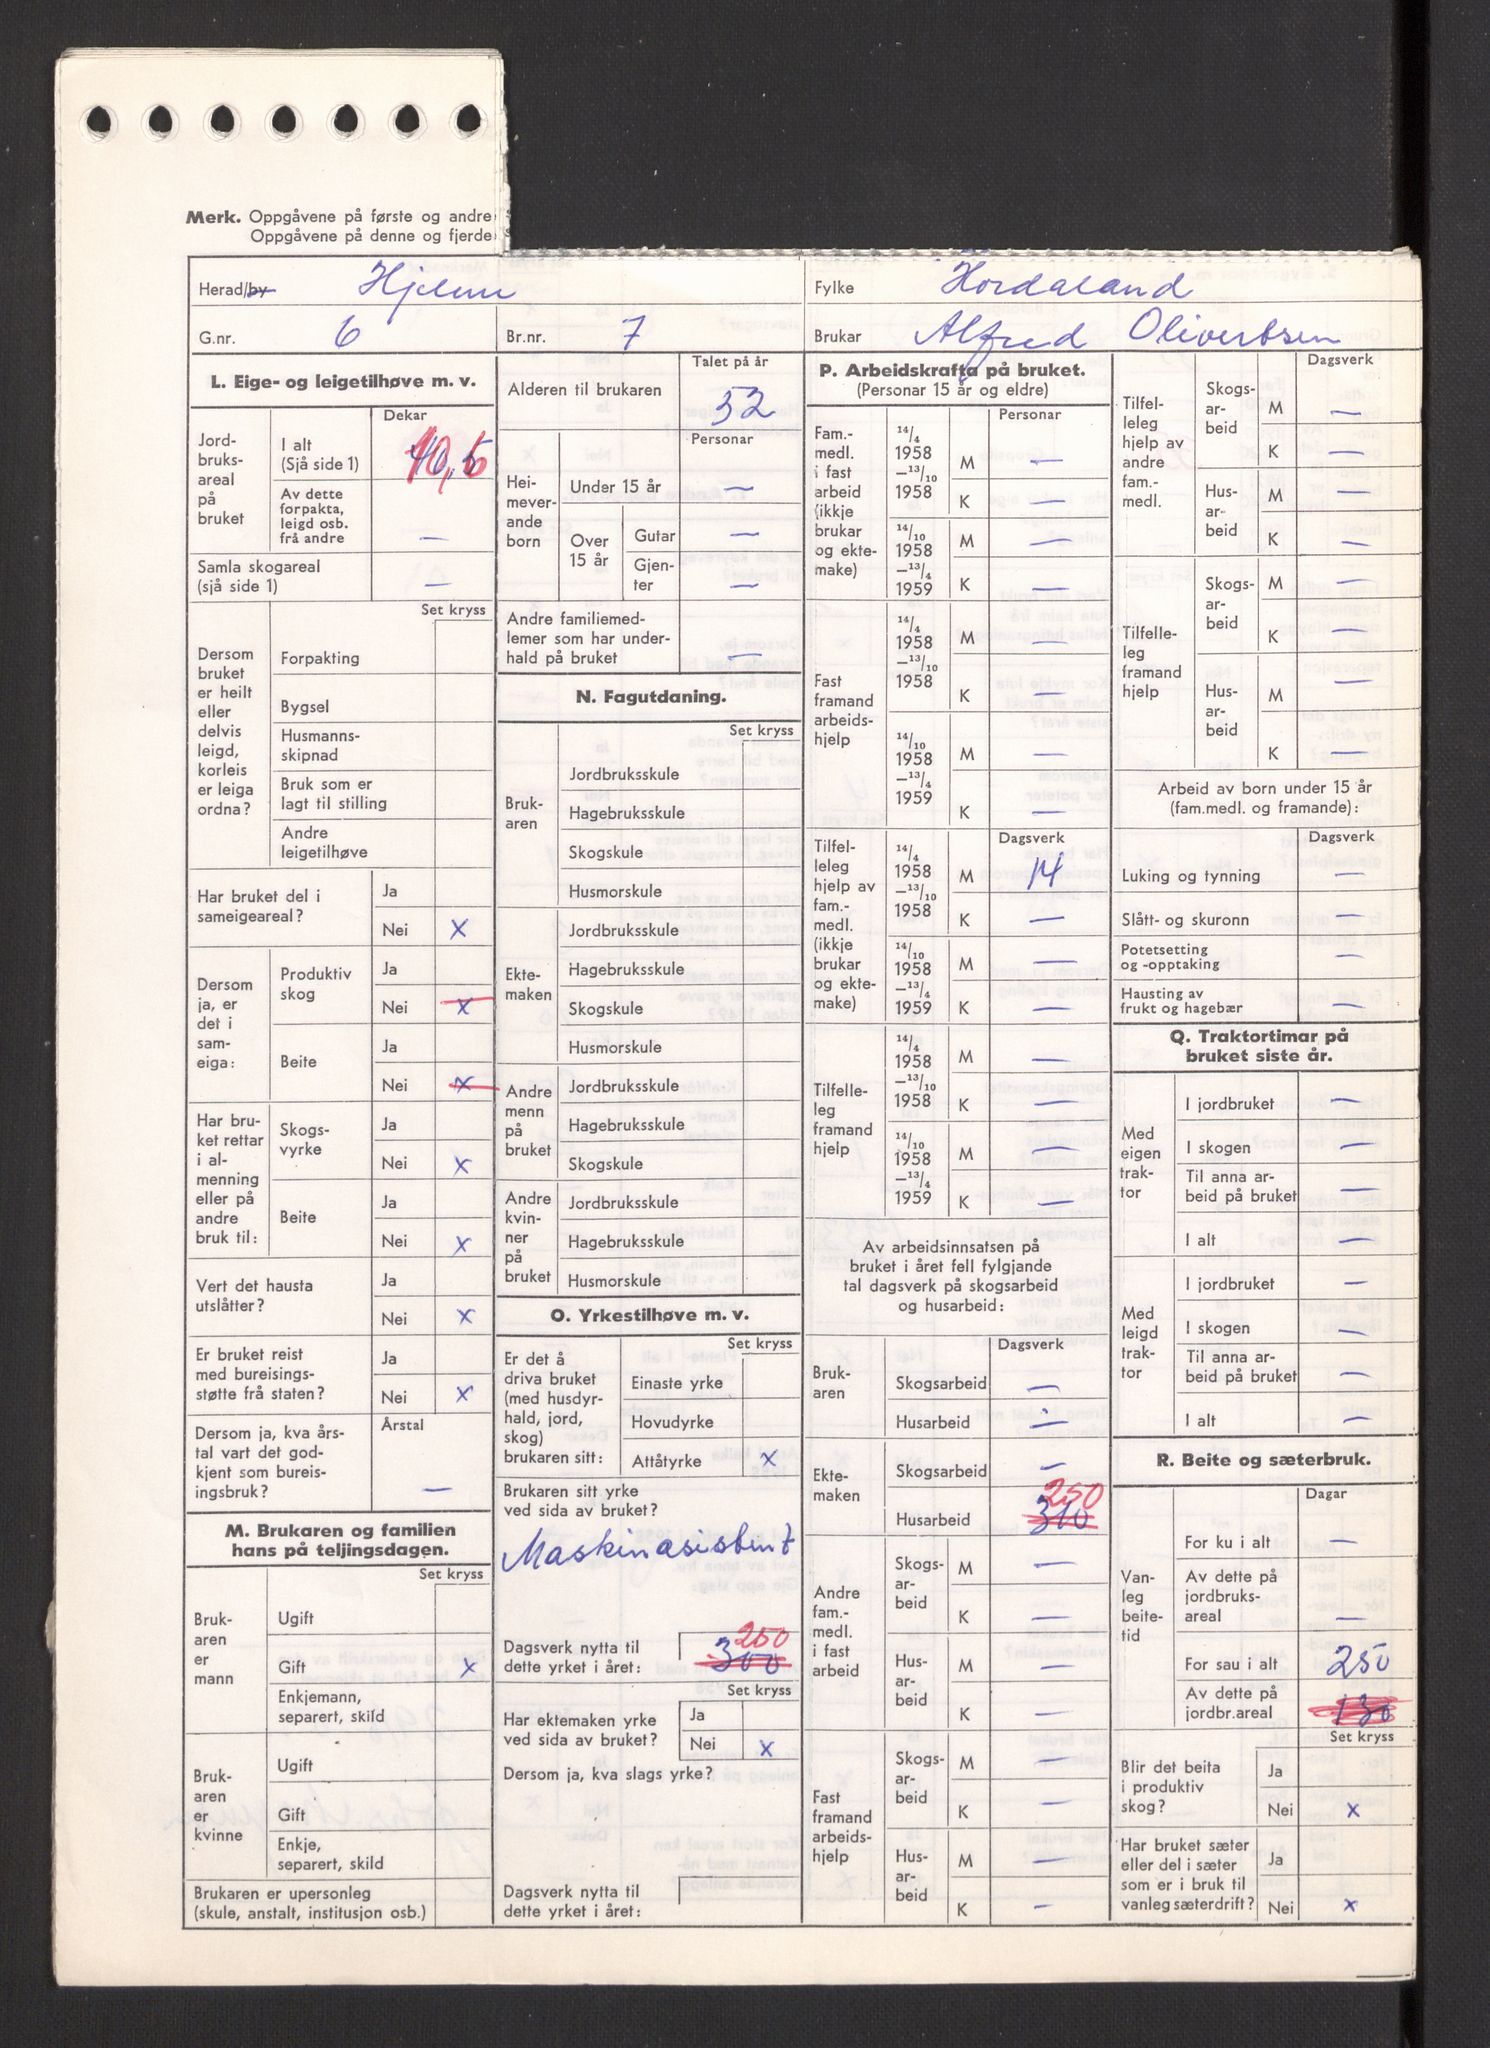 Merk. Oppgåvene på første og andre
Oppgåvene på denne og fjerde
Herad/by Hjelme
Fylke Hordaland
G.nr. 6
Br.nr. 7
Brukar Alfred Olivertsen
L. Eige- og leigetilhøve m. v.
Dekar
Jord-
bruks-
areal
på
bruket
I alt
(Sjå side 1)
10,5
Av dette
forpakta,
leigd osb.
frå andre —
Samla skogareal
(sjå side 1) —
Set kryss
Dersom
bruket
er heilt
eller
delvis
leigd,
korleis
er leiga
ordna?
Forpakting
Bygsel
Husmanns-
skipnad
Bruk som er
lagt til stilling
Andre
leigetilhøve
Har bruket del i
sameigeareal?
Ja
Nei x
Dersom
ja, er
det i
sam-
eiga:
Produktiv
skog
Ja
Nei x
Beite
Ja
Nei x
Har bru-
ket rettar
i al-
menning
eller på
andre
bruk til:
Skogs-
vyrke
Ja
Nei x
Beite
Ja
Nei x
Vert det hausta
utslåtter?
Ja
Nei x
Er bruket reist
med bureisings-
støtte frå staten?
Ja
Nei x
Dersom ja, kva års-
tal vart det god-
kjent som bureis-
ingsbruk?
Årstal
—
M. Brukaren og familien
hans på teljingsdagen.
Set kryss
Bruk-
aren
er
mann
Ugift
Gift x
Enkjemann,
separert, skild
Bruk-
aren
er
kvinne
Ugift
Gift
Enkje,
separert, skild
Brukaren er upersonleg
(skule, anstalt, institusjon osb.)
Talet på år
Alderen til brukaren 52
Personar
Hei-
mever-
ande
born
Under 15 år —
Over
15 år
Gutar —
Gjen-
ter —
Andre familiemed-
lemer som har under-
hald på bruket —
N. Fagutdaning.
Set kryss
Bruk-
aren
Jordbruksskule
Hagebruksskule
Skogskule
Husmorskule
Ekte-
maken
Jordbruksskule
Hagebruksskule
Skogskule
Husmorskule
Andre
menn
på
bruket
Jordbruksskule
Hagebruksskule
Skogskule
Andre
kvin-
ner
på
bruket
Jordbruksskule
Hagebruksskule
Husmorskule
O. Yrkestilhøve m. v.
Set kryss
Er det å
driva bruket
(med husdyr-
hald, jord,
skog)
brukaren sitt:
Einaste yrke
Hovudyrke
Attåtyrke x
Brukaren sitt yrke
ved sida av bruket?
Maskinasistent
Dagsverk nytta til
dette yrket i året:
250
300
Set kryss
Har ektemaken yrke
ved sida av bruket?
Ja
Nei x
Dersom ja, kva slags yrke?
Dagsverk nytta til
dette yrket i året:
P. Arbeidskrafta på bruket.
(Personar 15 år og eldre)
Personar
Fam.-
medl.
i fast
arbeid
(ikkje
brukar
og ekte-
make)
14/4
1958
—13/10
1958
M —
K —
14/10
1958
—13/4
1959
M —
K —
Fast
framand
arbeids-
hjelp
14/4
1958
—13/10
1958
M —
K —
14/10
1958
—13/4
1959
M —
K —
Dagsverk
Tilfel-
leleg
hjelp av
fam.-
medl.
(ikkje
brukar
og ekte-
make)
14/4
1958
—13/10
1958
M 14
K —
14/10
1958
—13/4
1959
M —
K —
Tilfelle-
leg
framand
hjelp
14/4
1958
—13/10
1958
M —
K —
14/10
1958
—13/4
1959
M —
K —
Av arbeidsinnsatsen på
bruket i året fell fylgjande
tal dagsverk på skogsarbeid
og husarbeid:
Dagsverk
Bruk-
aren
Skogsarbeid —
Husarbeid —
Ekte-
maken
Skogsarbeid —
Husarbeid
250
310
Andre
fam.-
medl.
i fast
arbeid
Skogs-
ar-
beid
M —
K —
Hus-
ar-
beid
M —
K —
Fast
framand
arbeids-
hjelp
Skogs-
ar-
beid
M —
K —
Hus-
ar-
beid
M —
K —
Dagsverk
Tilfel-
leleg
hjelp av
andre
fam.-
medl.
Skogs-
ar-
beid
M —
K —
Hus-
ar-
beid
M —
K —
Tilfelle-
leg
framand
hjelp
Skogs-
ar-
beid
M —
K —
Hus-
ar-
beid
M —
K —
Arbeid av born under 15 år
(fam.medl. og framande):
Dagsverk
Luking og tynning —
Slått- og skuronn —
Potetsetting
og -opptaking —
Hausting av
frukt og hagebær —
Q. Traktortimar på
bruket siste år.
Med
eigen
trak-
tor
I jordbruket —
I skogen —
Til anna ar-
beid på bruket —
I alt —
Med
leigd
trak-
tor
I jordbruket —
I skogen —
Til anna ar-
beid på bruket —
I alt —
R. Beite og sæterbruk.
Dagar
Van-
leg
beite-
tid
For ku i alt —
Av dette på
jordbruks-
areal —
For sau i alt 250
Av dette på
jordbr.areal 130
Set kryss
Blir det beita
i produktiv
skog?
Ja
Nei x
Har bruket sæter
eller del i sæter
som er i bruk til
vanleg sæterdrift?
Ja
Nei x